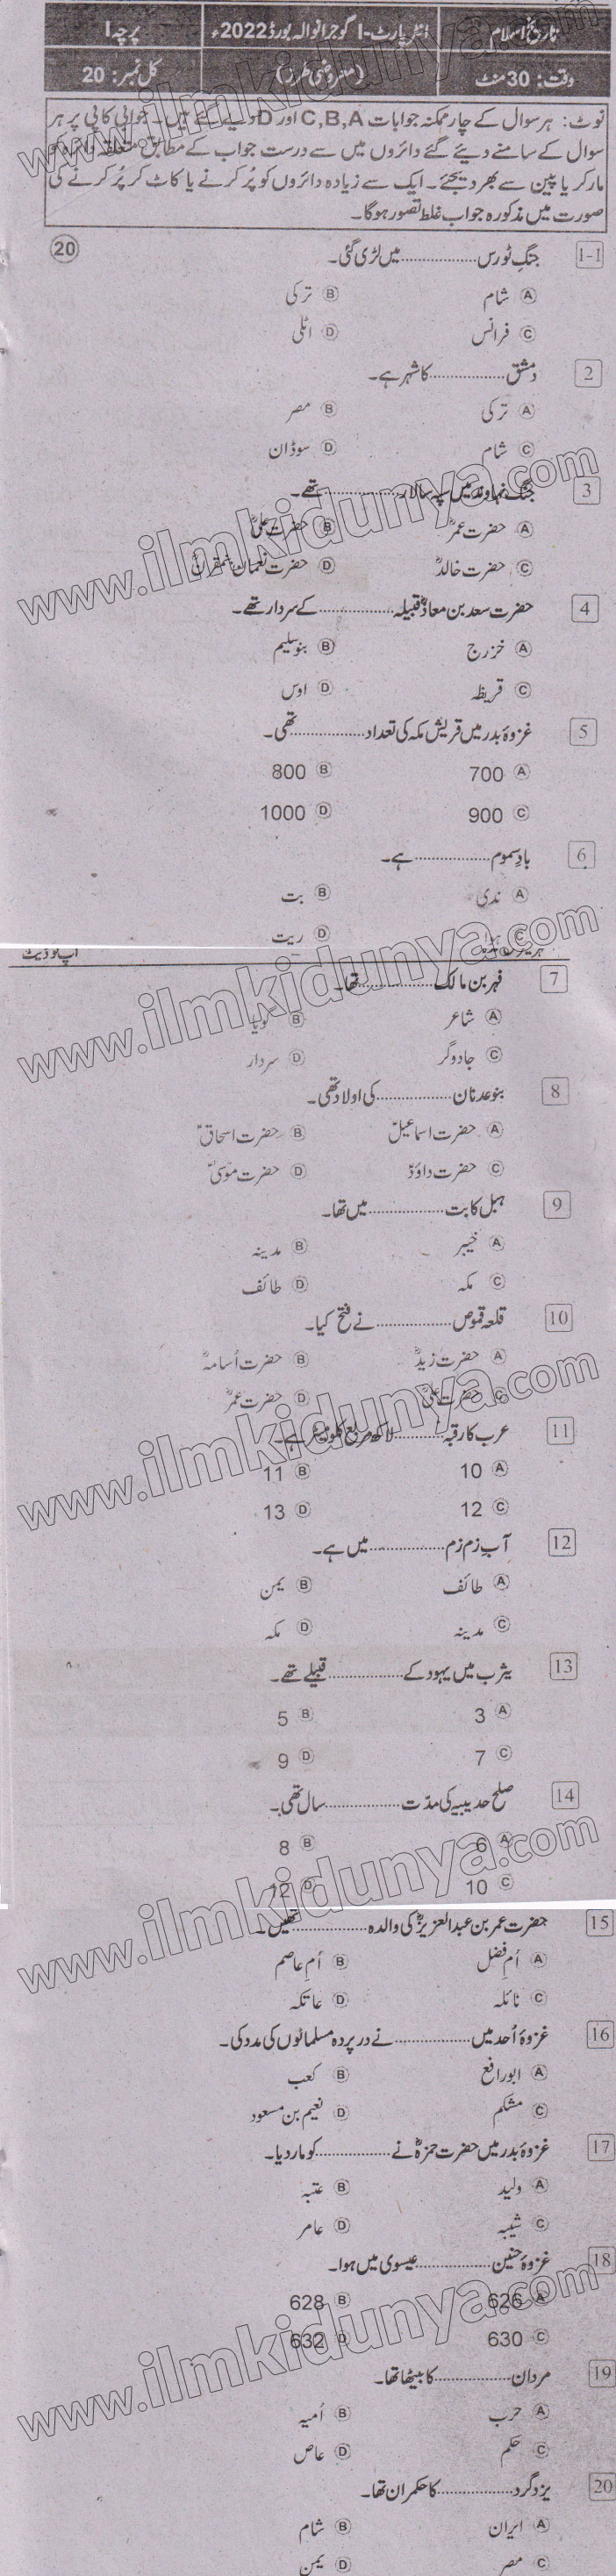 تاریخ اسلام انٹر پارٹ-I گوجرانوالہ بورڈ 2022ء پرچہ I
وقت: 30 منٹ (معروضی طرز) کل نمبر: 20
نوٹ: ہر سوال کے چار ممکنہ جوابات C,B,A اور D دیے گئے ہیں۔ جوابی کاپی پر ہر
سوال کے سامنے دیئے گئے دائروں میں سے درست جواب کے مطابق متعلقہ دائرہ کو
مارکر یا پین سے بھر دیجئے۔ ایک سے زیادہ دائروں کو پُر کرنے یا کاٹ کر پُر کرنے کی
صورت میں مذکورہ جواب غلط تصور ہوگا۔
1-I جنگ ٹورس ................. میں لڑی گئی۔ 20
A شام B ترکی
C فرانس D اٹلی
2 دمشق ................. کا شہر ہے۔
A ترکی B مصر
C شام D سوڈان
3 جنگ نہاوند میں سپہ سالار ................. تھے۔
A حضرت عمرؓ B حضرت علیؓ
C حضرت خالدؓ D حضرت نعمان بن مقرنؓ
4 حضرت سعد بن معاذؓ قبیلہ ................. کے سردار تھے۔
A خزرج B بنو سلیم
C قریظہ D اوس
5 غزوۂ بدر میں قریش مکہ کی تعداد ................. تھی۔
A 700 B 800
C 900 D 1000
6 بادِ سموم ................. ہے۔
A ندی B بت
C ہوا D ریت
اپ ٹو ڈیٹ
7 فہر بن مالک ................. تھا۔
A شاعر B گویا
C جادوگر D سردار
8 بنو عدنان ................. کی اولاد تھی۔
A حضرت اسماعیلؑ B حضرت اسحاقؑ
C حضرت داؤدؑ D حضرت موسیٰؑ
9 ہبل کا بت ................. میں تھا۔
A خیبر B مدینہ
C مکہ D طائف
10 قلعہ قموص ................. نے فتح کیا۔
A حضرت زیدؓ B حضرت اُسامہؓ
C حضرت علیؓ D حضرت عمرؓ
11 عرب کا رقبہ ................. لاکھ مربع کلومیٹر ہے۔
A 10 B 11
C 12 D 13
12 آبِ زم زم ................. میں ہے۔
A طائف B یمن
C مدینہ D مکہ
13 یثرب میں یہود کے ................. قبیلے تھے۔
A 3 B 5
C 7 D 9
14 صلح حدیبیہ کی مدّت ................. سال تھی۔
A 6 B 8
C 10 D 12
15 حضرت عمر بن عبدالعزیزؒ کی والدہ ................. تھیں۔
A اُم فضل B اُمِ عاصم
C نائلہ D عاتکہ
16 غزوۂ اُحد میں ................. نے در پردہ مسلمانوں کی مدد کی۔
A ابو رافع B کعب
C مشکم D نعیم بن مسعود
17 غزوۂ بدر میں حضرت حمزہؓ نے ................. کو مار دیا۔
A ولید B عتبہ
C شیبہ D عامر
18 غزوۂ حنین ................. عیسوی میں ہوا۔
A 626 B 628
C 630 D 632
19 مردان ................. کا بیٹھا تھا۔
A حرب B اُمیہ
C حکم D عاص
20 یزدگرد ................. کا حکمران تھا۔
A ایران B شام
C مصر D یمن
www.ilmkidunya.com
www.ilmkidunya.com
www.ilmkidunya.com
www.ilmkidunya.com
www.ilmkidunya.com
www.ilmkidunya.com